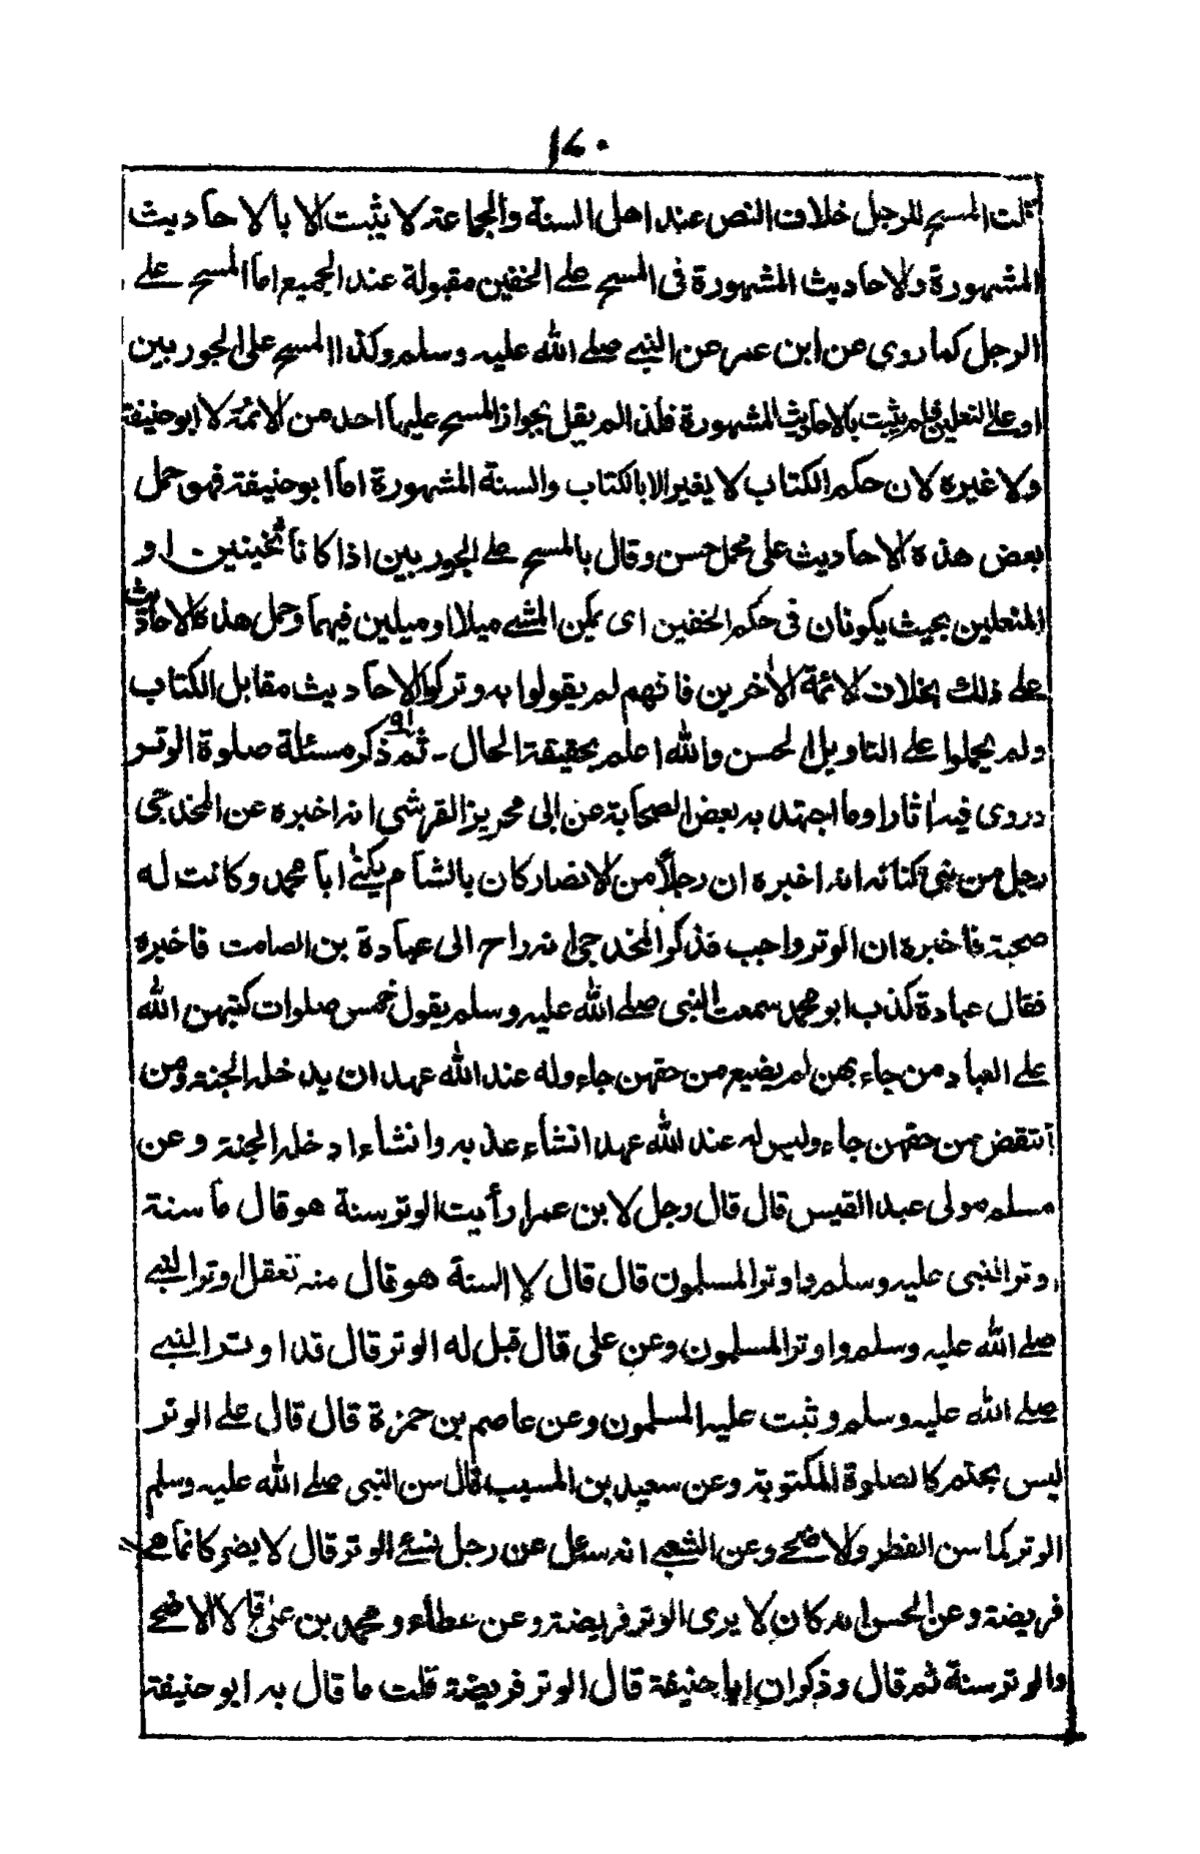 ١٧٠
قلت المسح للرجل خلاف النص عند اهل السنة والجماعة لا يثبت الا بالاحاديث
المشهورة والاحاديث المشهورة فى المسح على الخفين مقبولة عند الجميع اما المسح على
الرجل كما روى عن ابن عمر عن النبى صلى الله عليه وسلم وكذا المسح على الجوربين
او على النعلين فلم يثبت بالاحاديث المشهورة فلذا لم يقل بجواز المسح عليها احد من الائمة لا ابو حنيفة
ولا غيره لان حكم الكتاب لا يغير الا بالكتاب والسنة المشهورة اما ابو حنيفة فهو حمل
بعض هذه الاحاديث على محمل حسن وقال بالمسح على الجوربين اذا كانا ثخينين او
المنعلين بحيث يكونان فى حكم الخفين اى يمكن المشى ميلا او ميلين فيهما وحمل هذه الاحاديث
على ذلك بخلاف الائمة الاخرين فانهم لم يقولوا به وتركوا الاحاديث مقابل الكتاب
ولم يحملوا على التاويل الحسن والله اعلم بحقيقة الحال - ثم ذكر مسئلة صلوة الوتر
وروى فيه اثارا وما اجتهد به بعض الصحابة عن ابى محريز القرشى انه اخبره عن المخدجى
رجل من بنى كنانه انه اخبره ان رجلا من الانصار كان بالشام يكنى ابا محمد وكانت له
صحبة فاخبره ان الوتر واجب فذكر المخدجى انه راح الى عبادة بن الصامت فاخبره
فقال عبادة كذب ابو محمد سمعت النبى صلى الله عليه وسلم يقول خمس صلوات كتبهن الله
على العباد من جاء بهن لم يضيع من حقهن جاء وله عند الله عهد ان يدخله الجنة ومن
انتقض من حقهن جاء وليس له عند الله عهد انشاء عذبه وانشاء ادخله الجنة وعن
مسلم مولى عبد القيس قال قال رجل لابن عمر ارأيت الوتر سنة هو قال ما سنة
وتر النبى عليه وسلم واوتر المسلمون قال قال لا السنة هو قال منه تعقل اوتر النبى
صلى الله عليه وسلم واوتر المسلمون وعن على قال قيل له الوتر قال قد اوتر النبى
صلى الله عليه وسلم وثبت عليه المسلمون وعن عاصم بن حمزة قال قال على الوتر
ليس بحتم كالصلوة المكتوبة وعن سعيد بن المسيب قال سن النبى صلى الله عليه وسلم
الوتر كما سن الفطر والاضحى وعن الشعبى انه سئل عن رجل نسئ الوتر قال لا يضر كانما هى
فريضة وعن الحسن انه كان لا يرى الوتر فريضة وعن عطاء ومحمد بن على قالا الاضحى
والوتر سنة ثم قال وذكر ان ابا حنيفة قال الوتر فريضة قلت ما قال به ابو حنيفة